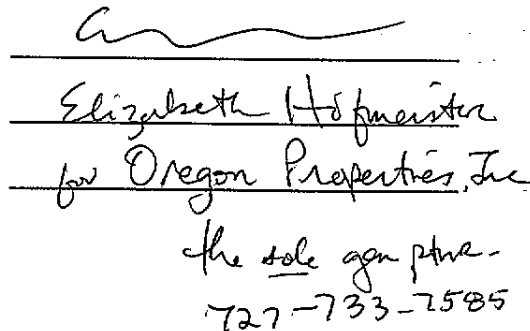 Elizabeth Hofmeister
for Oregon Properties, Inc
the sole gen ptnr-
727-733-7585